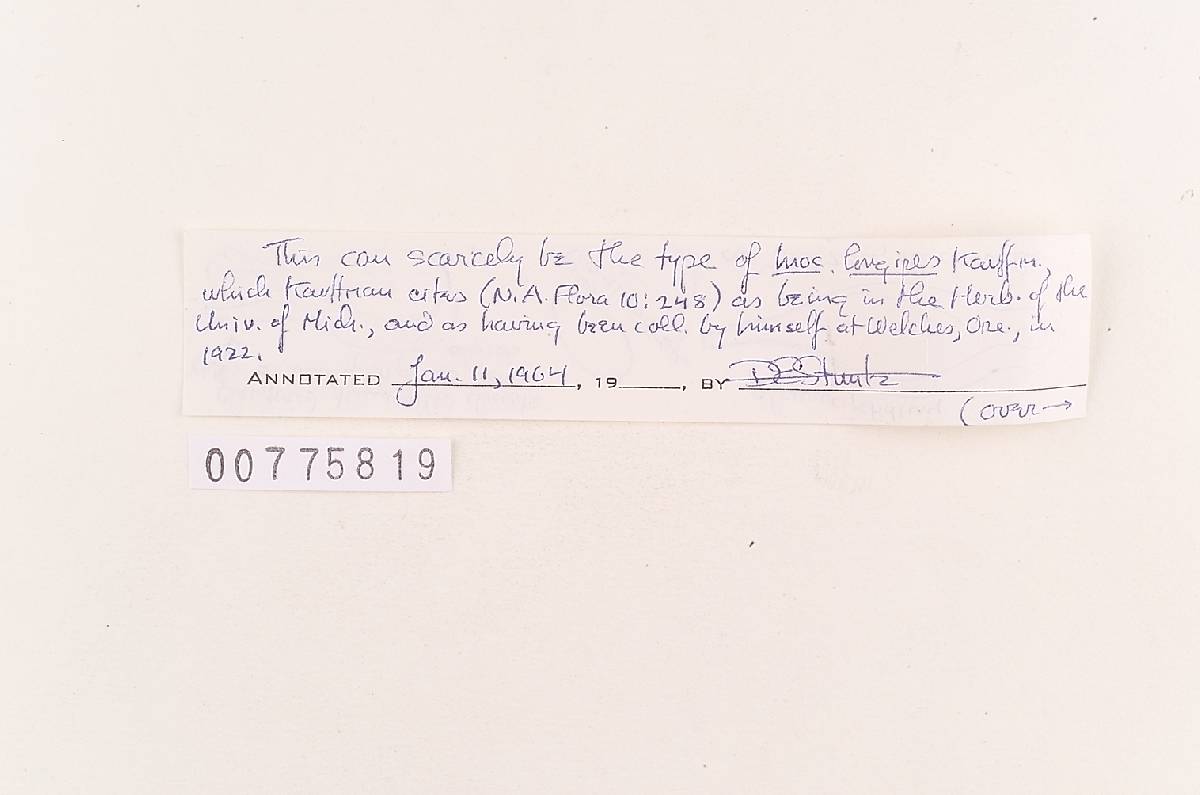 This can scarcely be the type of Inoc. longipes Kauffm.,
which Kauffman cites (N.A. Flora 10: 248) as being in the Herb. of the
Univ. of Mich., and as having been coll. by himself at Welches, Ore., in
1922.
ANNOTATED Jan. 11, 1964, 19____, BY DE Stuntz
(over→
00775819